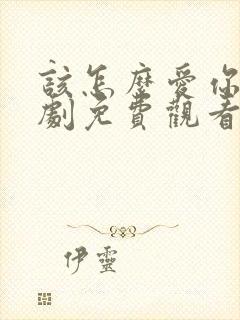 該怎麼愛你
劇免費觀看
伊靈